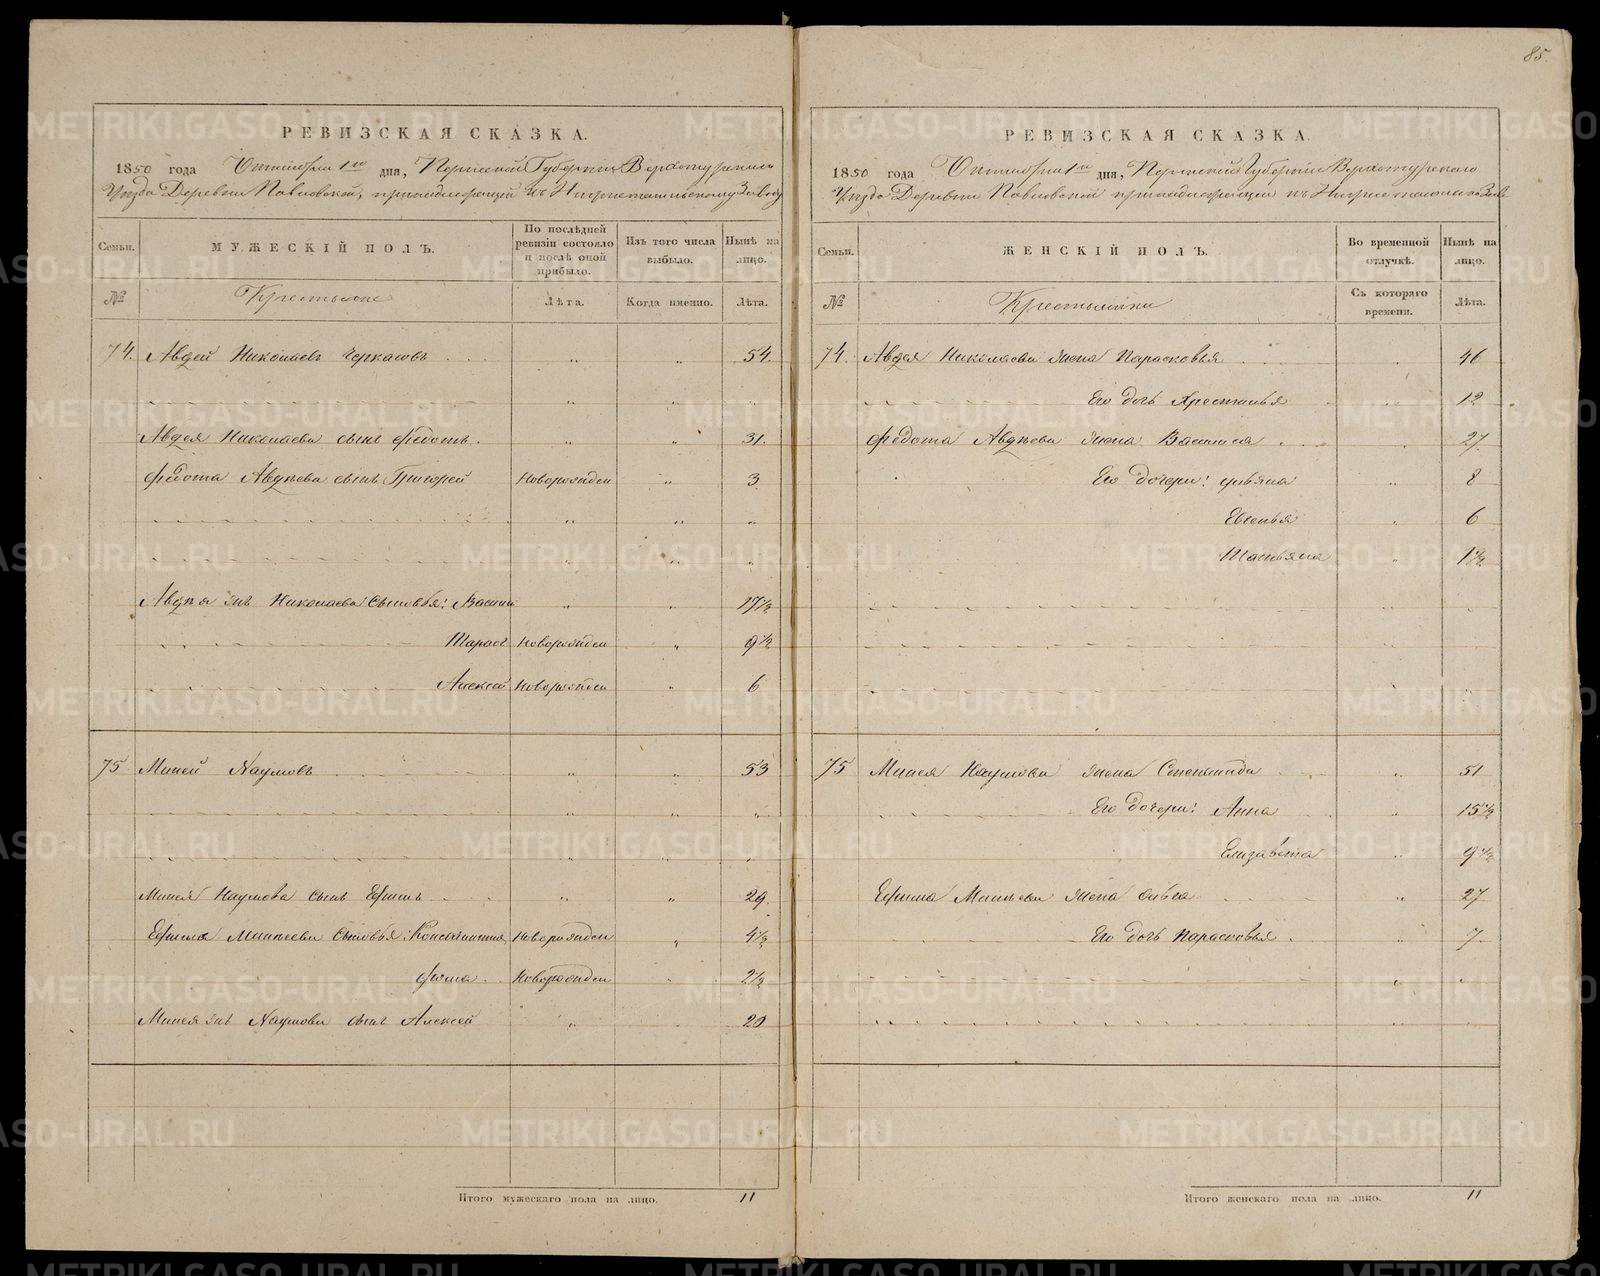 85.
РЕВИЗСКАЯ СКАЗКА.
1850 года Октября 1го дня, Пермской Губернии Верхотурскаго
Уезда Деревни Павловской, принадлежащей къ Нижнетагильскому Заводу
Семьи.
МУЖЕСКІЙ ПОЛЪ.
По послѣдней ревизіи состояло и послѣ оной прибыло.
Изъ того числа выбыло.
Нынѣ на лицо.
№
Крестьяне
Лѣта.
Когда именно.
Лѣта.
74. Авдей Николаевъ Черкасовъ 54.
Авдея Николаева сынъ Федотъ. 31.
Федота Авдѣева сынъ Григорей Новорожден 3
Авдѣя жъ Николаева Сыновья: Васили 17½
Тарасъ Новорожден 9½
Алексей Новорожден 6
75 Миней Наумовъ 53
Минея Наумова сынъ Ефимъ 29.
Ефима Минѣева Сыновья: Константинъ Новорожден 4½
Фома Новорожден 2½
Минея жъ Наумова сынъ Алексей 20
Итого мужескаго пола на лицо. 11
РЕВИЗСКАЯ СКАЗКА.
1850 года Октября 1го дня, Пермской Губерніи Верхотурскаго
Уезда Деревни Павловской принадлежащей къ
Семьи.
ЖЕНСКІЙ ПОЛЪ.
Во временной отлучкѣ.
Нынѣ на лицо.
№
Крестьянки
Съ котораго времени.
Лѣта.
74. Авдея Николаева жена Парасковья 46
Его дочь Хрестинья 12
Федота Авдѣева жена Василиса 27
Его дочери: Ульяна 8
Евгенья 6
Татьяна 1½
75 Минея Наумова жена 51
Его дочери: Анна 15½
Елизавета 9½
Ефима Минѣева жена 27
Его дочь Парасковья. 7
Итого женскаго пола на лицо. 11
METRIKI.GASO-URAL.RU